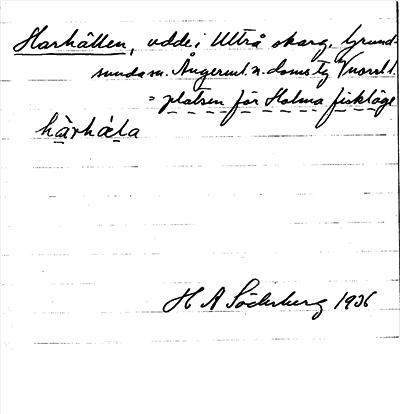 Harhällen, udde i Ultrå skärg. Grund-
sunda sn. Ångerml. n. doms tg Vnorrl l.
= platsen för Halma fiskläge
hàrhǽla
H A Söderberg 1936